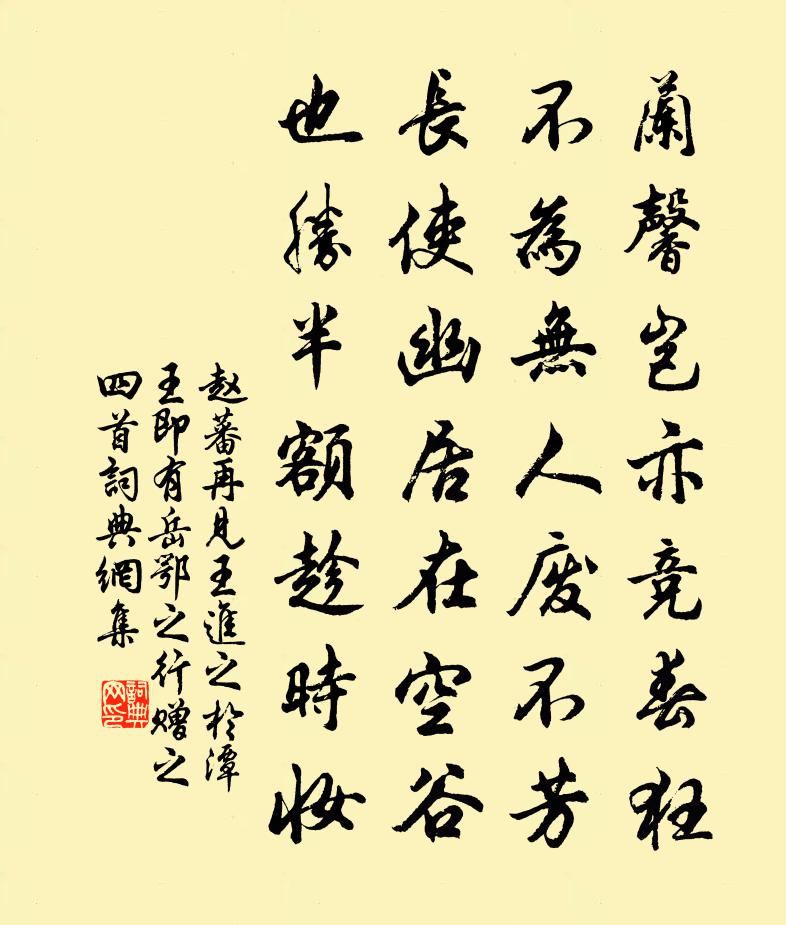 蘭馨豈亦竞春狂
不為無人廢不芳
長使幽居在空谷
也勝半額趁時妝
赵蕃再见王進之於潭
王即有岳鄂之行赠之
四首詞典網集
詞典